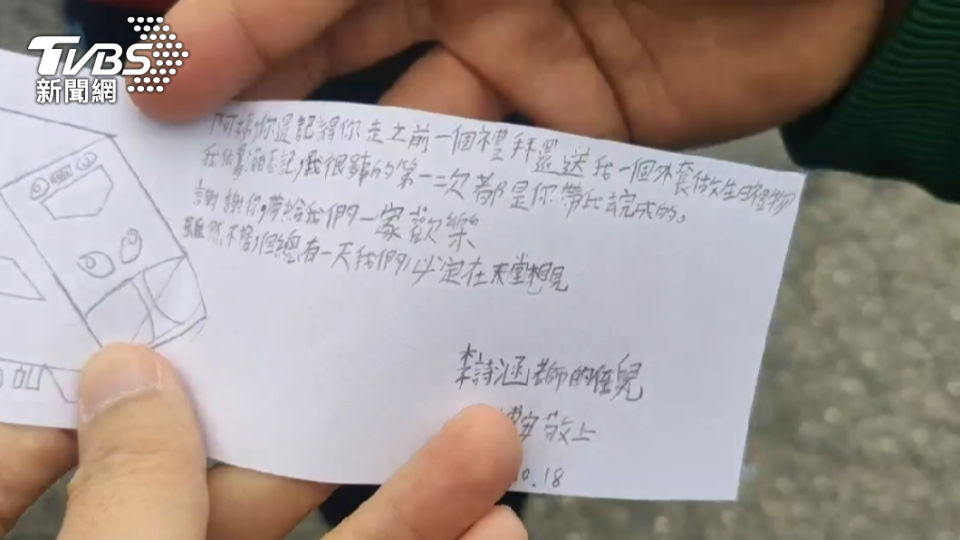 TVBS
新聞網
阿姊,你還記得你走之前一個禮拜還送我一個外套做生日禮物
我很多的第一次都是你帶我去完成的。
謝謝你,帶給我們一家歡樂
雖然不捨,但總有一天我們必定在天堂相見
李詩涵老師的姪兒
敬上
10.18